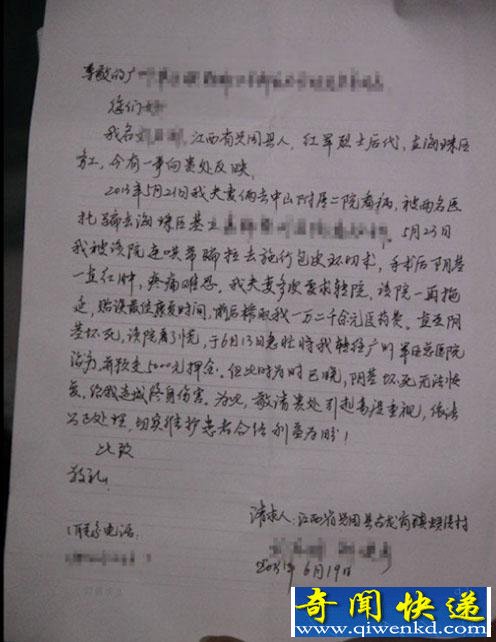 尊敬的广
您们好
我名 江西省兴国县人，红军烈士后代，在海珠区
务工，今有一事向贵处反映。
2013年5月21日我夫妻俩去中山附属二院看病，被两名医
托骗去海珠区基立 5月23日
我被该院连哄带骗拉去施行包皮环切术，手术后阴茎
一直红肿，疼痛难忍。我夫妻多次要求转院，该院一再拖
延，贻误最佳康复时间，前后榨取我一万二千余元医药费。直至阴
茎坏死，该院着了慌，于6月13日急忙将我转往广州军区总医院
治疗，并预交5000元押金。但此时为时已晚，阴茎坏死无法恢
复，给我造成终身伤害。为此，敬请贵处引起高度重视，依法
公正处理，切实维护患者合法利益为盼！
此致
敬礼
请求人：江西省兴国县古龙岗镇 村
联系电话：
2013年6月19日
奇闻快递
www.qiwenkd.com